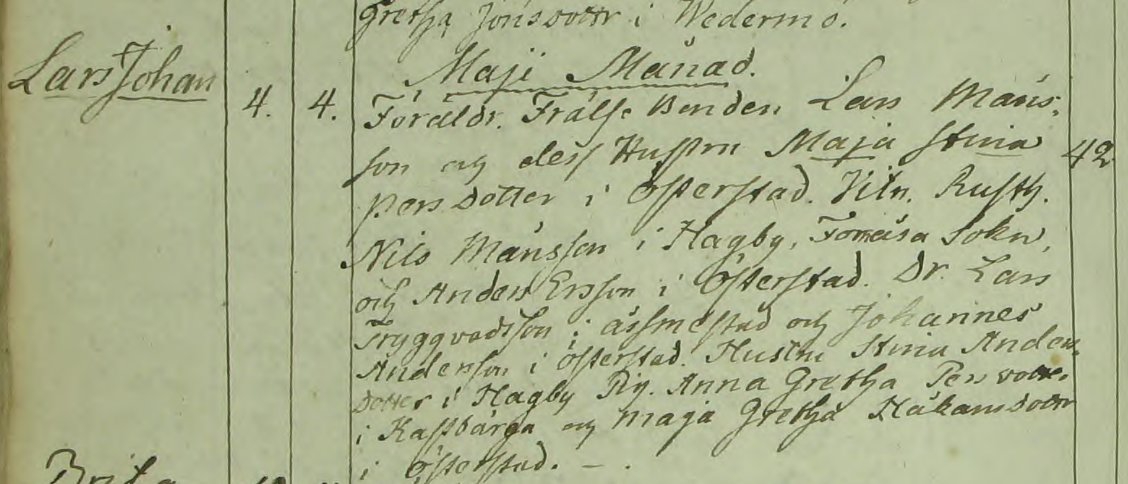 Gretha Jönsdottr i Wedermo.
Maji Månad.
Lars Johan 4. 4. Föräldr. Frälse Bonden Lars Måns-
son och dess Hustru Maja Stina 42
Persdotter i Österstad. Vitn. Rusth.
Nils Månsson i Hagby, Fornåsa Sokn,
och Anders Ersson i Österstad. Dr. Lars
Tryggvadsson i Assmestad och Johannes
Andersson i Österstad. Hustru Stina Anders-
dotter i Hagby Pig. Anna Gretha Persdotter
i Kassbärga och Maja Gretha Håkansdottr
i Österstad. –.
Brita